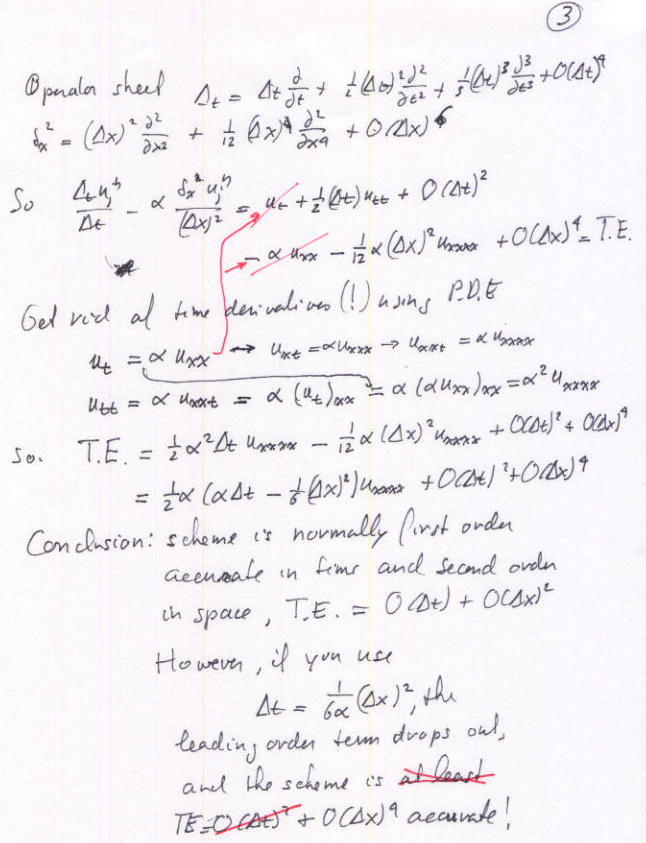 ③
Operator sheet Δₜ = Δt ∂/∂t + ½(Δt)² ∂²/∂t² + ⅓(Δt)³ ∂³/∂t³ + O(Δt)⁴
δₓ² = (Δx)² ∂²/∂x² + 1/12 (Δx)⁴ ∂²/∂x⁴ + O(Δx)⁶
So Δₜuⱼⁿ/Δt − α δₓ²uⱼⁿ/(Δx)² = uₜ + ½(Δt)uₜₜ + O(Δt)²
− αuₓₓ − 1/12 α(Δx)²uₓₓₓₓ + O(Δx)⁴ = T.E.
Get rid of time derivatives (!) using P.D.E
uₜ = αuₓₓ → uₓₜ = αuₓₓₓ → uₓₓₜ = αuₓₓₓₓ
uₜₜ = αuₓₓₜ = α(uₜ)ₓₓ = α(αuₓₓ)ₓₓ = α²uₓₓₓₓ
So. T.E. = ½α²Δt uₓₓₓₓ − 1/12 α(Δx)²uₓₓₓₓ + O(Δt)² + O(Δx)⁴
= ½α(αΔt − 1/6(Δx)²)uₓₓₓₓ + O(Δt)² + O(Δx)⁴
Conclusion: scheme is normally first order
accurate in time and second order
in space, T.E. = O(Δt) + O(Δx)²
However, if you use
Δt = 1/6α (Δx)², the
leading order term drops out,
and the scheme is at least
TE = O(Δt)² + O(Δx)⁴ accurate!